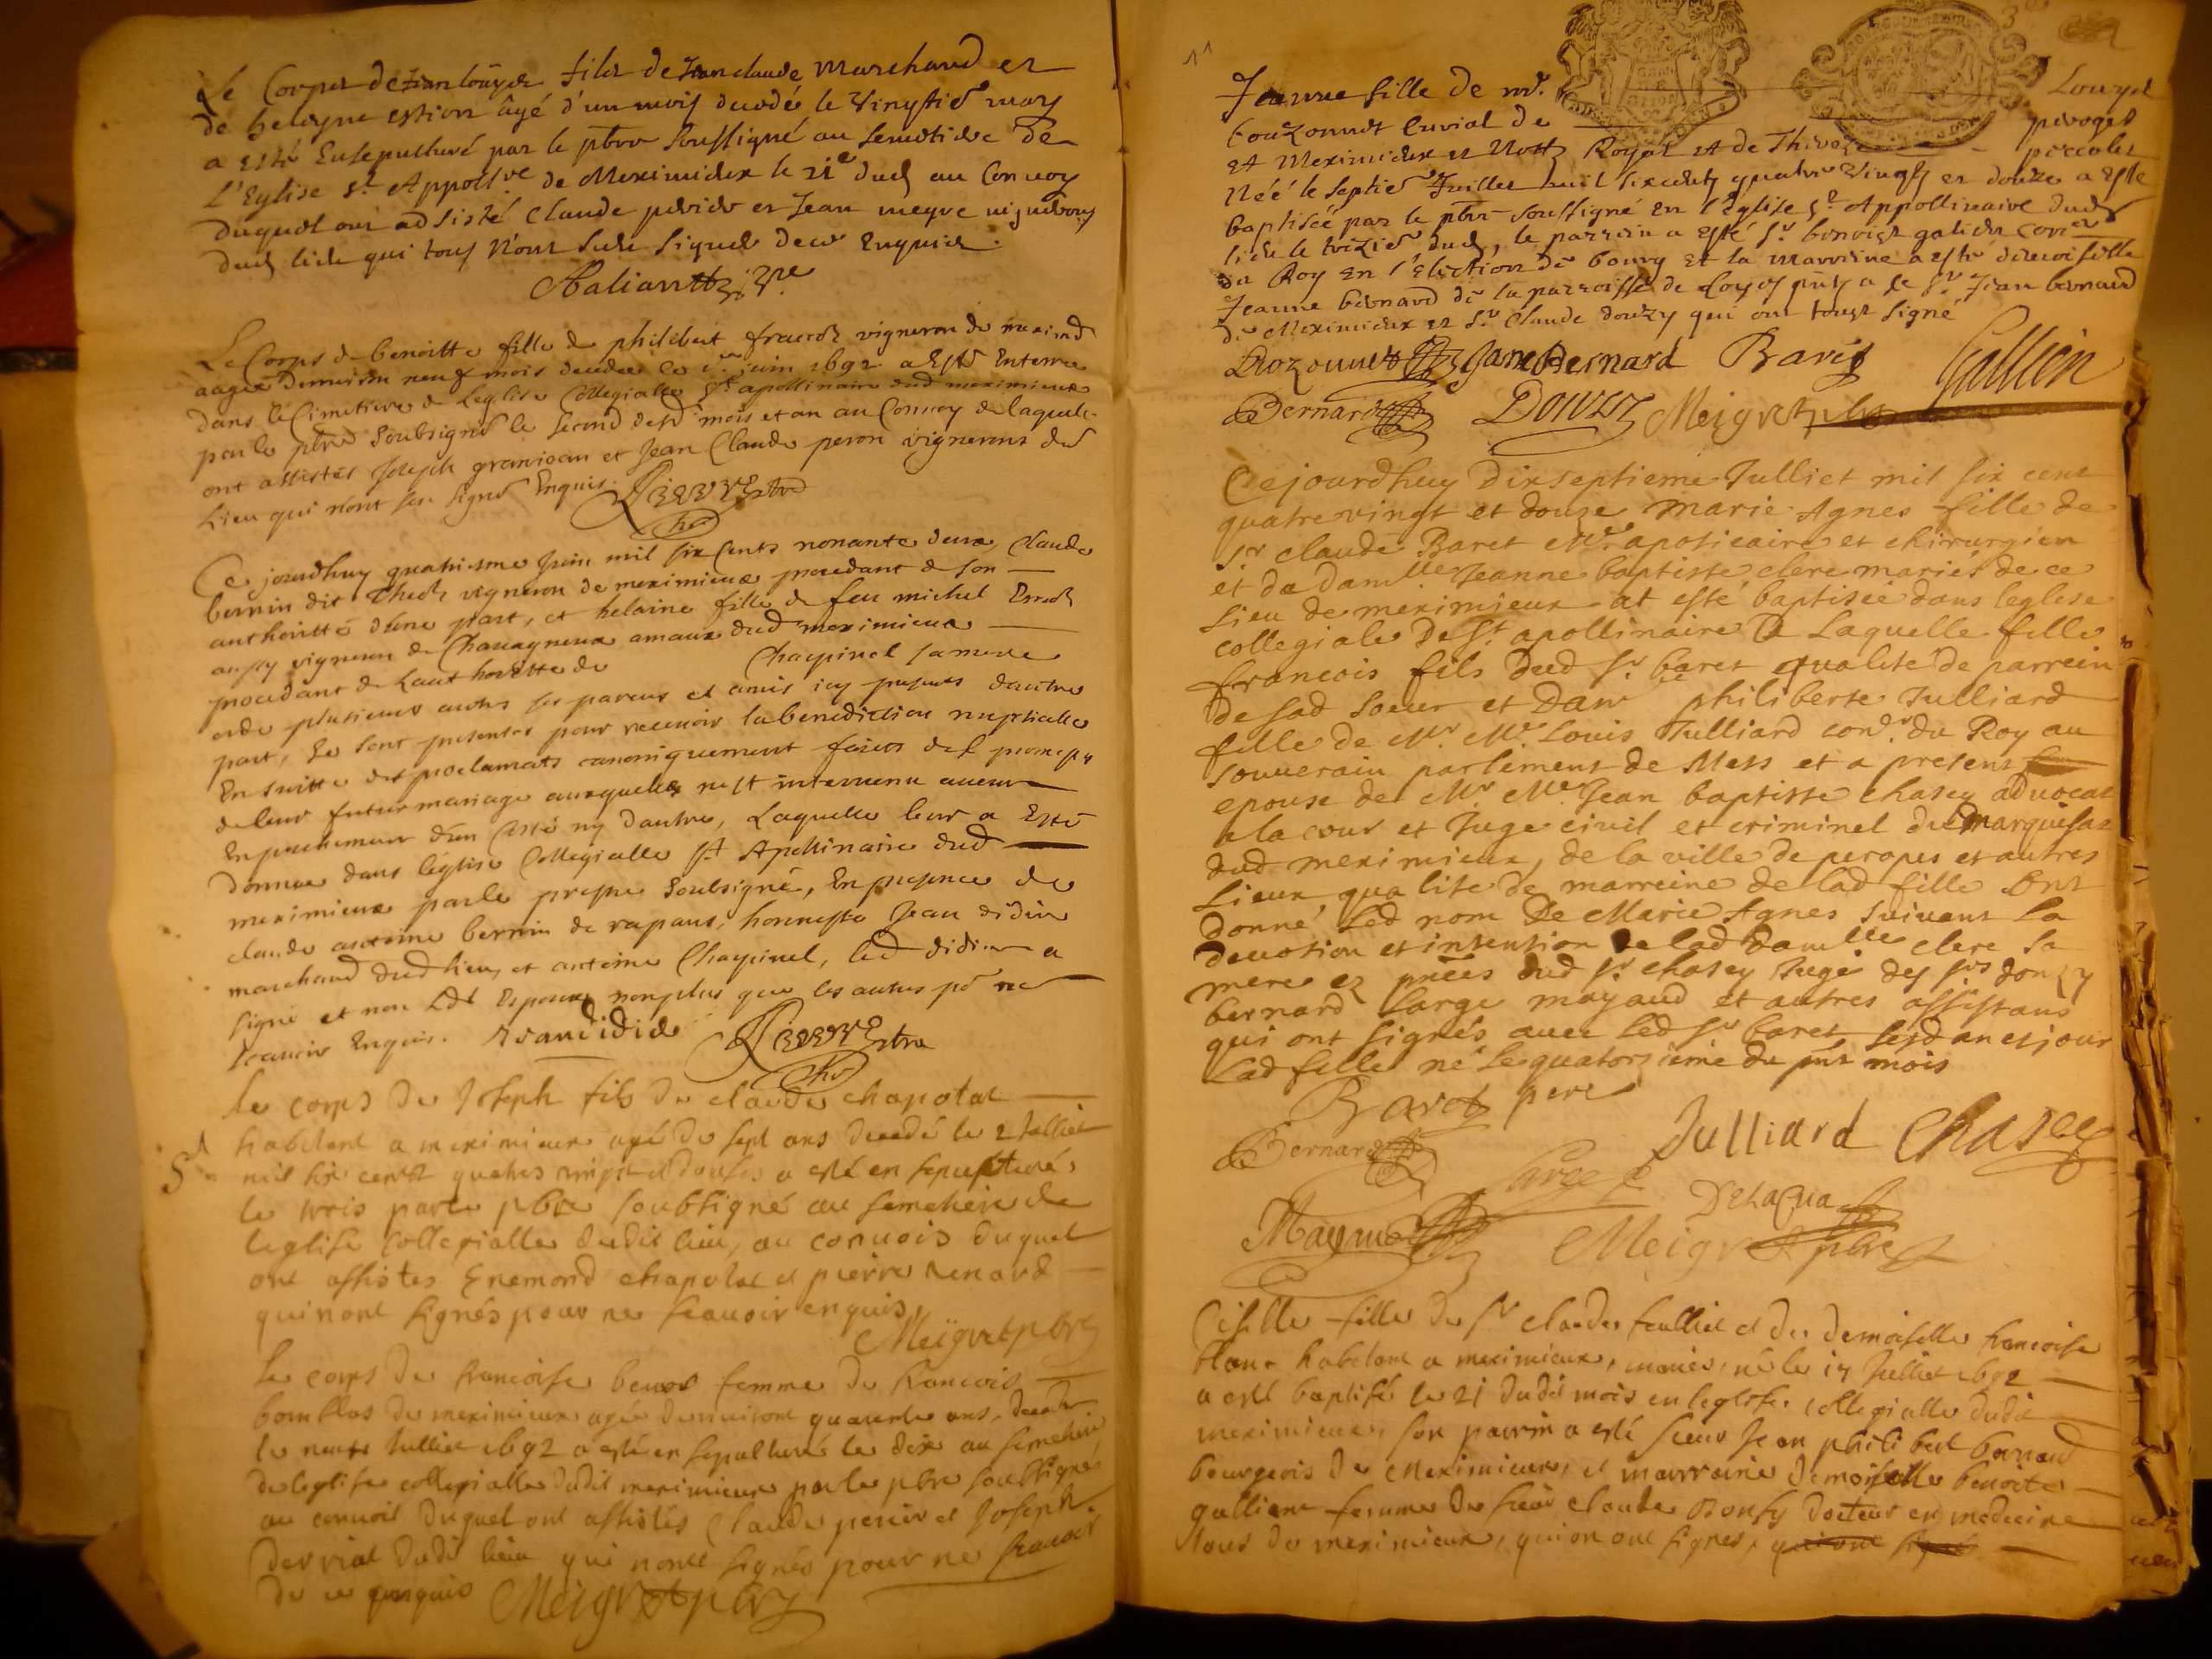 Le Corps de Jean fils de Jean claude Marchand et
de âgé d'un mois decedé le Vingtie may
a esté Ensepulturé par le pbre soussigné au Semetiere de
L'Eglise St Appolre de Meximieux le 21e dud au Convoy
Duquel ont adsisté Claude perier et Jean vignerons
dud lieu qui tous n'ont sceu signer de ce Enquis.
Le Corps de benoitte fille de philibert vigneron de meximd
aagée denviron neuf mois decedée le 1er juin 1692 a Esté Enterrée
dans le Cimetiere de Leglise Collegialle St apollinaire dud meximieux
par le pbre Soubsigné le second desd mois et an au Convoy de laquele
ont assistés Joseph granjean et Jean Claude peron vignerons dud
Lieu qui n'ont sceu signer Enquis.
Ce jourdhuy quatriesme Juin mil six Cents nonante deux, Claude
bernin dit vigneron de meximieux procedant de son
authoritté d'une part, et helaine fille de feu michel
aussy vigneron de Chavagneux amaux dud meximieux
procedant de Lauthoritté de Chapinel sa mere
et de plusieurs autres ses parens et amis icy presents dautre
part, Se sont presentés pour recevoir la benediction nuptialle
En suitte des proclamats canoniquement faites des promesses
de leur futur mariage auxquelles nest intervenu aucun
Enpechement d'un Costé ny dautre, Laquelle leur a Esté
donnée dans léglise Collegialle St Apollinaire dud
meximieux par le prestre Soubsigné, En presence de
claude antoine bernin de rapans, honneste Jean didier
marchand dud lieu, et antoine Chapinel, led didier a
signé et non Lesd Espoux nonplus que les autres pr ne
scavoir Enquis. Jean didier
Le corps de Joseph fils de claude chapolat
habitant a meximieux agé de sept ans decedé le 2 Julliet
mil six cent quatre vingt et douse a esté en sepulturé
le trois par le pbre soubsigné au semetiere de
leglise collegialle dudit lieu, au convois duquel
ont assistes Enemond chapolat et pierre renard
qui nont signés pour ne scavoir enquis,
Meigret pbre
Le corps de francoise femme de francois
de meximieux agée denviront quarente ans, decedée
le neuf Julliet 1692 a esté en sepulturé le dix au semetiere
de leglise collegialle dudit meximieux par le pbre soussigné
au convoit duquel ont assistés Claude perier et Joseph
derriat dudit lieu qui nont signés pour ne scavoir
de ce enquis Meigret pbre
11
3
Jeanne fille de mr. Louys
curial de peroges
Et Meximieux et Nottre Royal et de
Néé le septie Juillet mil sixcents quatre Vingts et douze a esté
baptiséé par le pbre soussigné En l'Eglise St Appollinaire dud
lieu le trizie dud, le parrein a esté Sr benoist galien
du Roy en l'Election de bourg et la marreine a esté demoiselle
Jeanne bernard de la parroisse de Loyes puis a le Sr Jean bernard
de Meximieux et Sr Claude douzy qui ont tous signé
Jane Bernard Baret Gallien
Bernard Douzy Meigret pbre
Cejourdhuy Dixseptieme Julliet mil six cent
quatrevingt et douze Marie Agnes fille de
Sr claude Baret Mre apoticaire et chirurgien
et de damlle Jeanne baptiste clere mariés de ce
lieu de meximieux at esté baptisée dans leglese
collegiale De St apollinaire De Laquelle fille
francois fils Dud Sr baret qualité de parrein
de sad soeur et Damlle philiberte Julliard
fille de Mr Me Louis Julliard conr. du Roy au
souverain parlement de Mets et a present
epouse de Mr Me Jean baptiste chasey advocat
a la cour et Juge civil et criminel du Marquisat
dud meximieux, de la ville de peroges et autres
Lieux, qualité de marreine de lad fille Ont
donné Led nom De Marie Agnes suivant la
devotion et intention de lad damlle clere sa
mere ez pnces dud Sr chasey Juge des Srs douzy
bernard Large mayaud et autres assistans
qui ont signés avec led Sr baret lesd an et jour
Lad fille né le quatorzieme du pnt mois
Baret pere
Julliard Chasey
Bernard Large
Delacua
Meigret pbre
fille de Sr claude feulliet et de demoiselle francoise
blanc habitant a meximieux, mariés, né le 17 Julliet 1692
a esté baptisé le 21 dudit mois en leglise collegialle dudit
meximieux, son parrin a esté sieur Jean philibert bernard
bourgeois de Meximieux, et marraine demoiselle benoite
gallient femme de sieur claude Bonfy docteur en medecine
tous de meximieux, qui on ont signes, qui ont signés